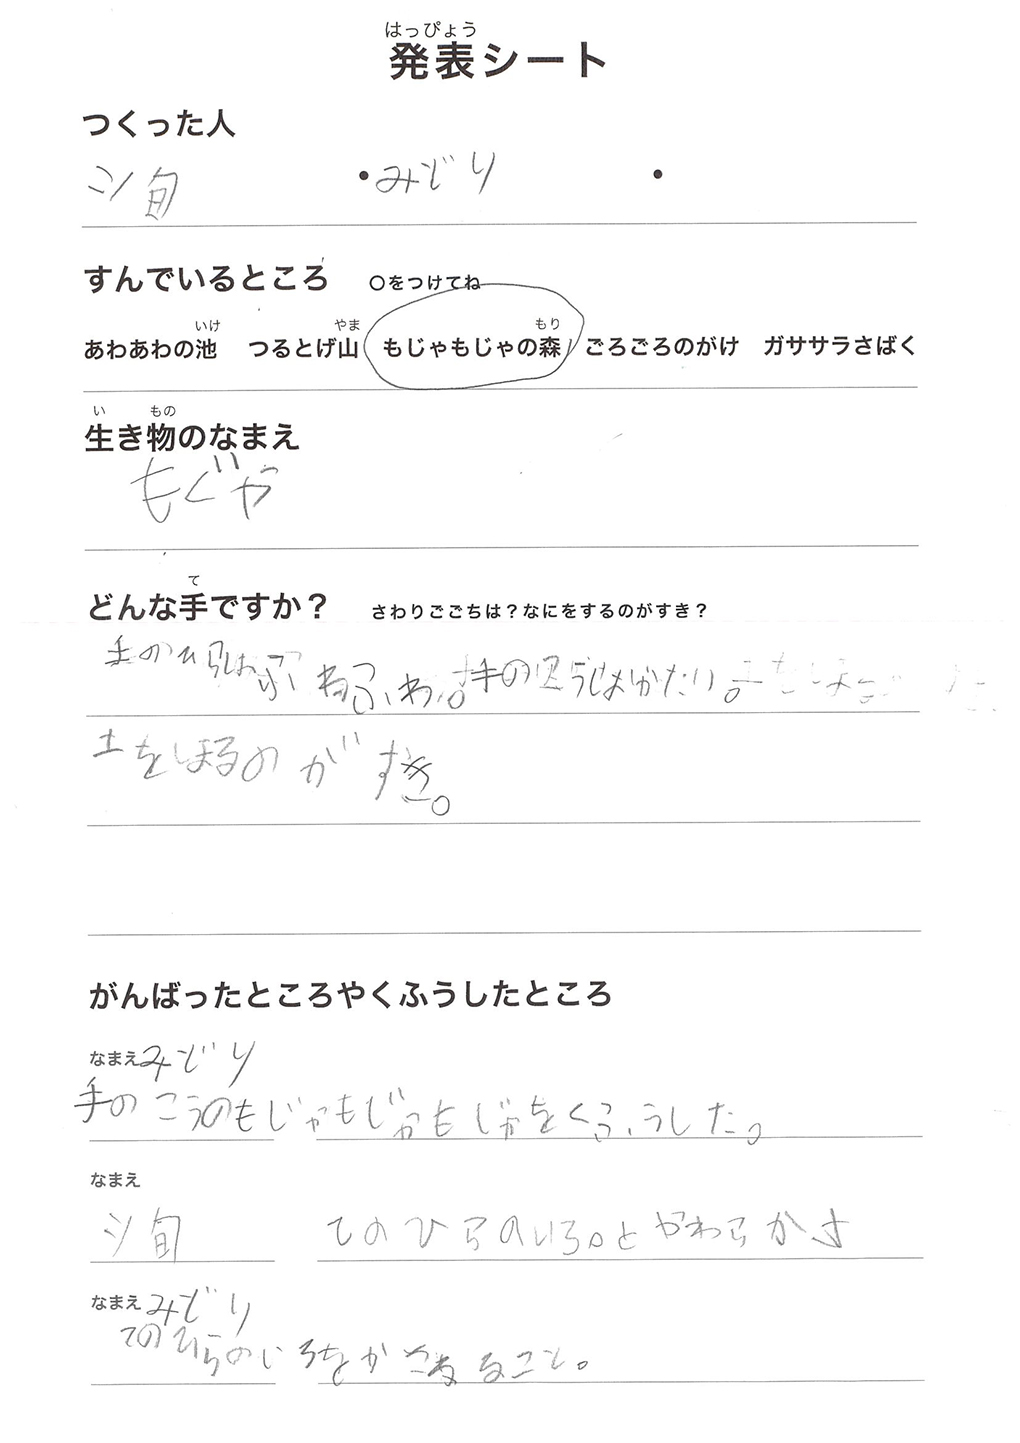 はっぴょう
発表シート
つくった人
・みどり ・
すんでいるところ ○をつけてね
いけ やま もり
あわあわの池 つるとげ山 もじゃもじゃの森 ごろごろのがけ ガササラさばく
い もの
生き物のなまえ
もぐや
て
どんな手ですか？ さわりごごちは？なにをするのがすき？
手のひらはふわふわ。手のこうはかたい。
土をほるのがすき。
がんばったところやくふうしたところ
なまえ みどり
手のこうのもじゃもじゃもじゃをくふうした。
なまえ
てのひらのいろ。とやわらかさ
なまえ みどり
てのひらのいろをかさねること。